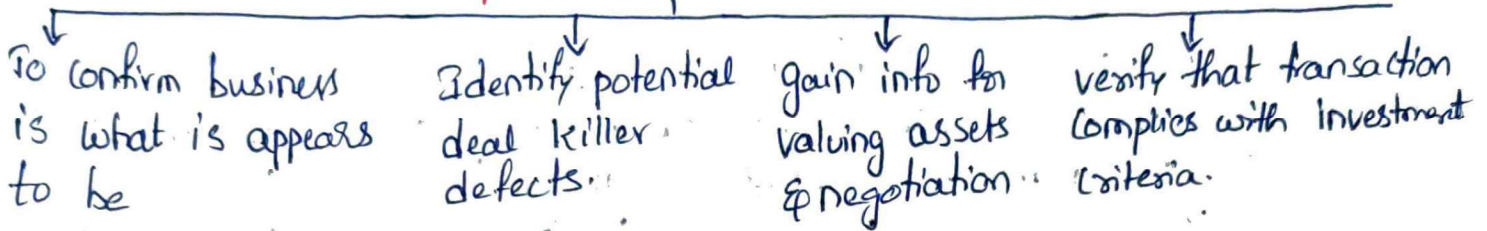 To confirm business
is what is appears
to be
Identify potential
deal killer
defects.
gain info for
valuing assets
& negotiation.
verify that transaction
complies with investment
criteria.